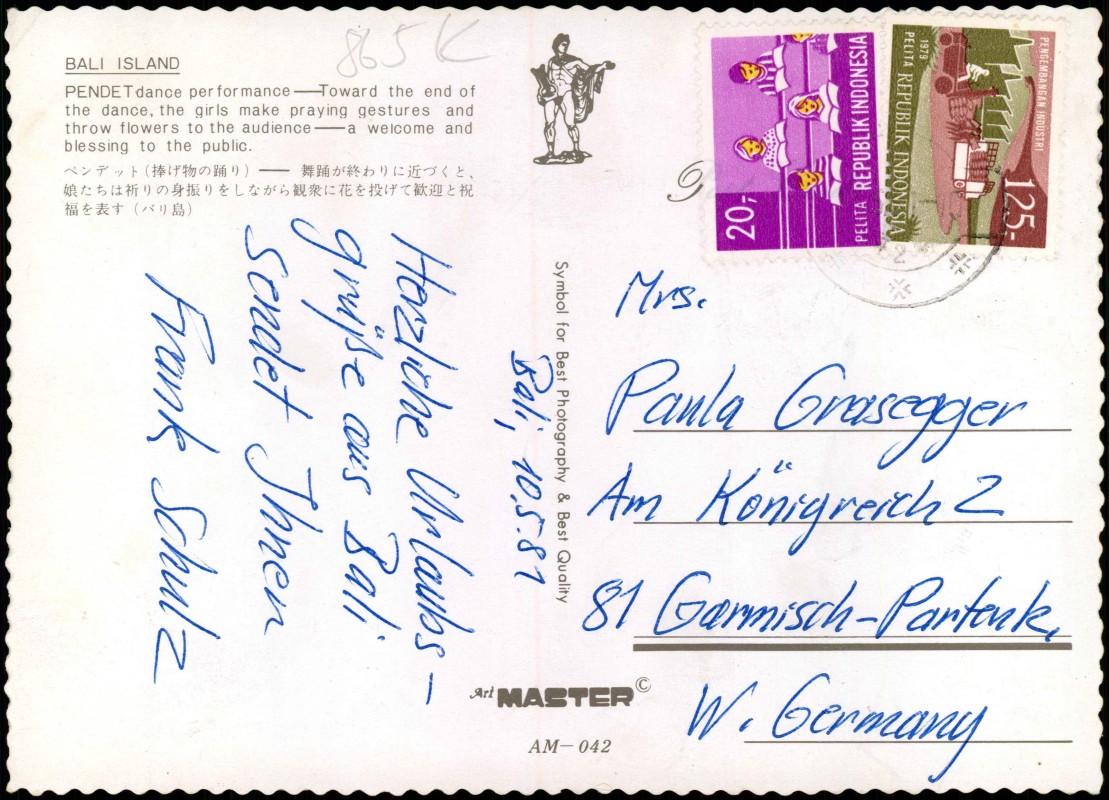 865 K
BALI ISLAND
PENDET dance performance—Toward the end of
the dance, the girls make praying gestures and
throw flowers to the audience—a welcome and
blessing to the public.
ペンデット(捧げ物の踊り)— 舞踊が終わりに近づくと、
娘たちは祈りの身振りをしながら観衆に花を投げて歓迎と祝
福を表す(バリ島)
Bali, 10.5.81
Herzliche Urlaubs-
grüße aus Bali
Sendet Ihnen
Frank Schulz
Symbol for Best Photography & Best Quality
Art MASTER©
AM-042
20,-
PELITA REPUBLIK INDONESIA
1979
PELITA REPUBLIK INDONESIA
PENGEMBANGAN INDUSTRI
125.-
Mrs.
Paula Grasegger
Am Königreich 2
81 Garmisch-Partenk.
W. Germany